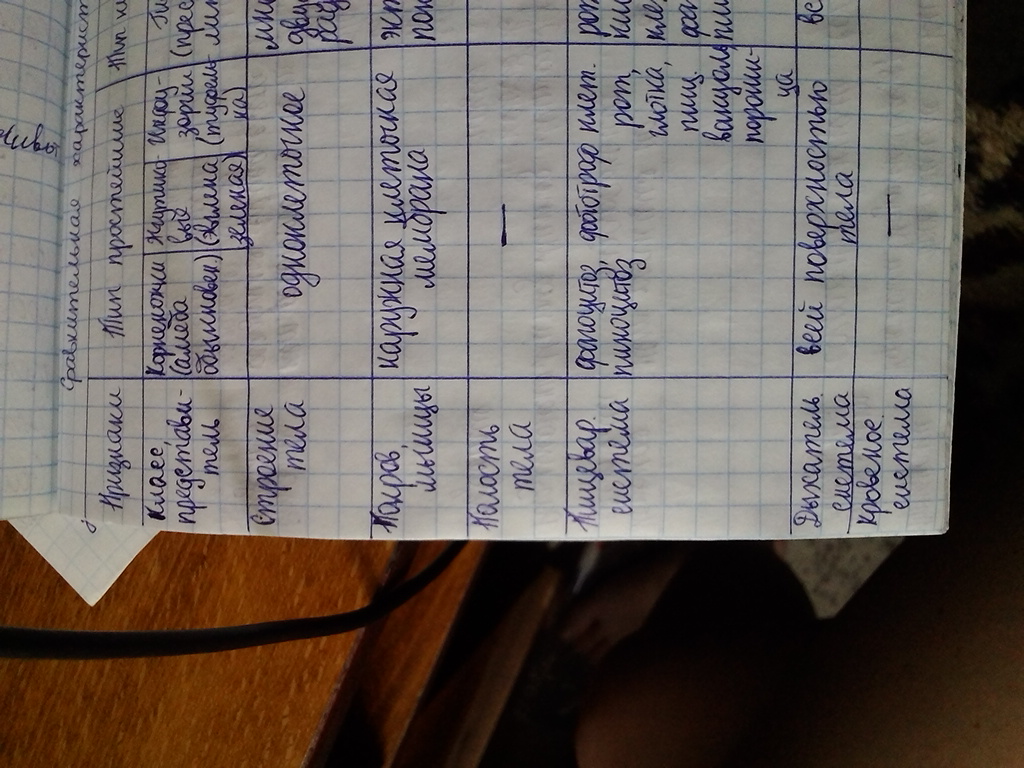 Сравнительная характерист
Признаки
Тип простейшие
Тип
Класс, представи-
тель
Корненожки
(амеба
обыкновен)
Жгутико-
вые
(эвглена
зеленая)
Инфу-
зории
(туфель-
ка)
(прес
Строение
тела
одноклеточное
Покров
мышцы
наружная клеточная
мембрана
Полость
тела
—
Пищевар.
система
фагоцитоз,
пиноцитоз
фототроф
клет.
рот,
глотка,
пищ.
вакуоль,
пороши-
ца
Дыхатель
система
всей поверхностью
тела
кровеное
система
—